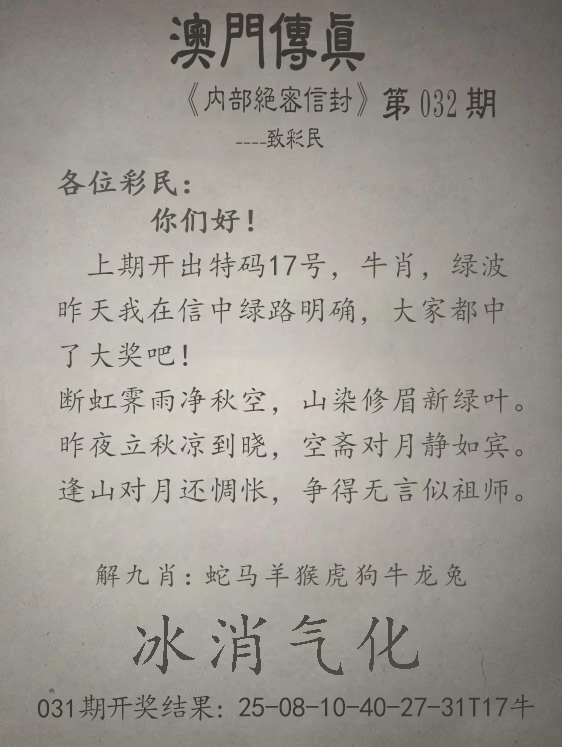 澳門傳眞
《内部絕密信封》第032期
----致彩民
各位彩民：
你们好！
上期开出特码17号，牛肖，绿波
昨天我在信中绿路明确，大家都中
了大奖吧！
断虹霁雨净秋空，山染修眉新绿叶。
昨夜立秋凉到晓，空斋对月静如宾。
逢山对月还惆怅，争得无言似祖师。
解九肖：蛇马羊猴虎狗牛龙兔
冰消气化
031期开奖结果：25-08-10-40-27-31T17牛